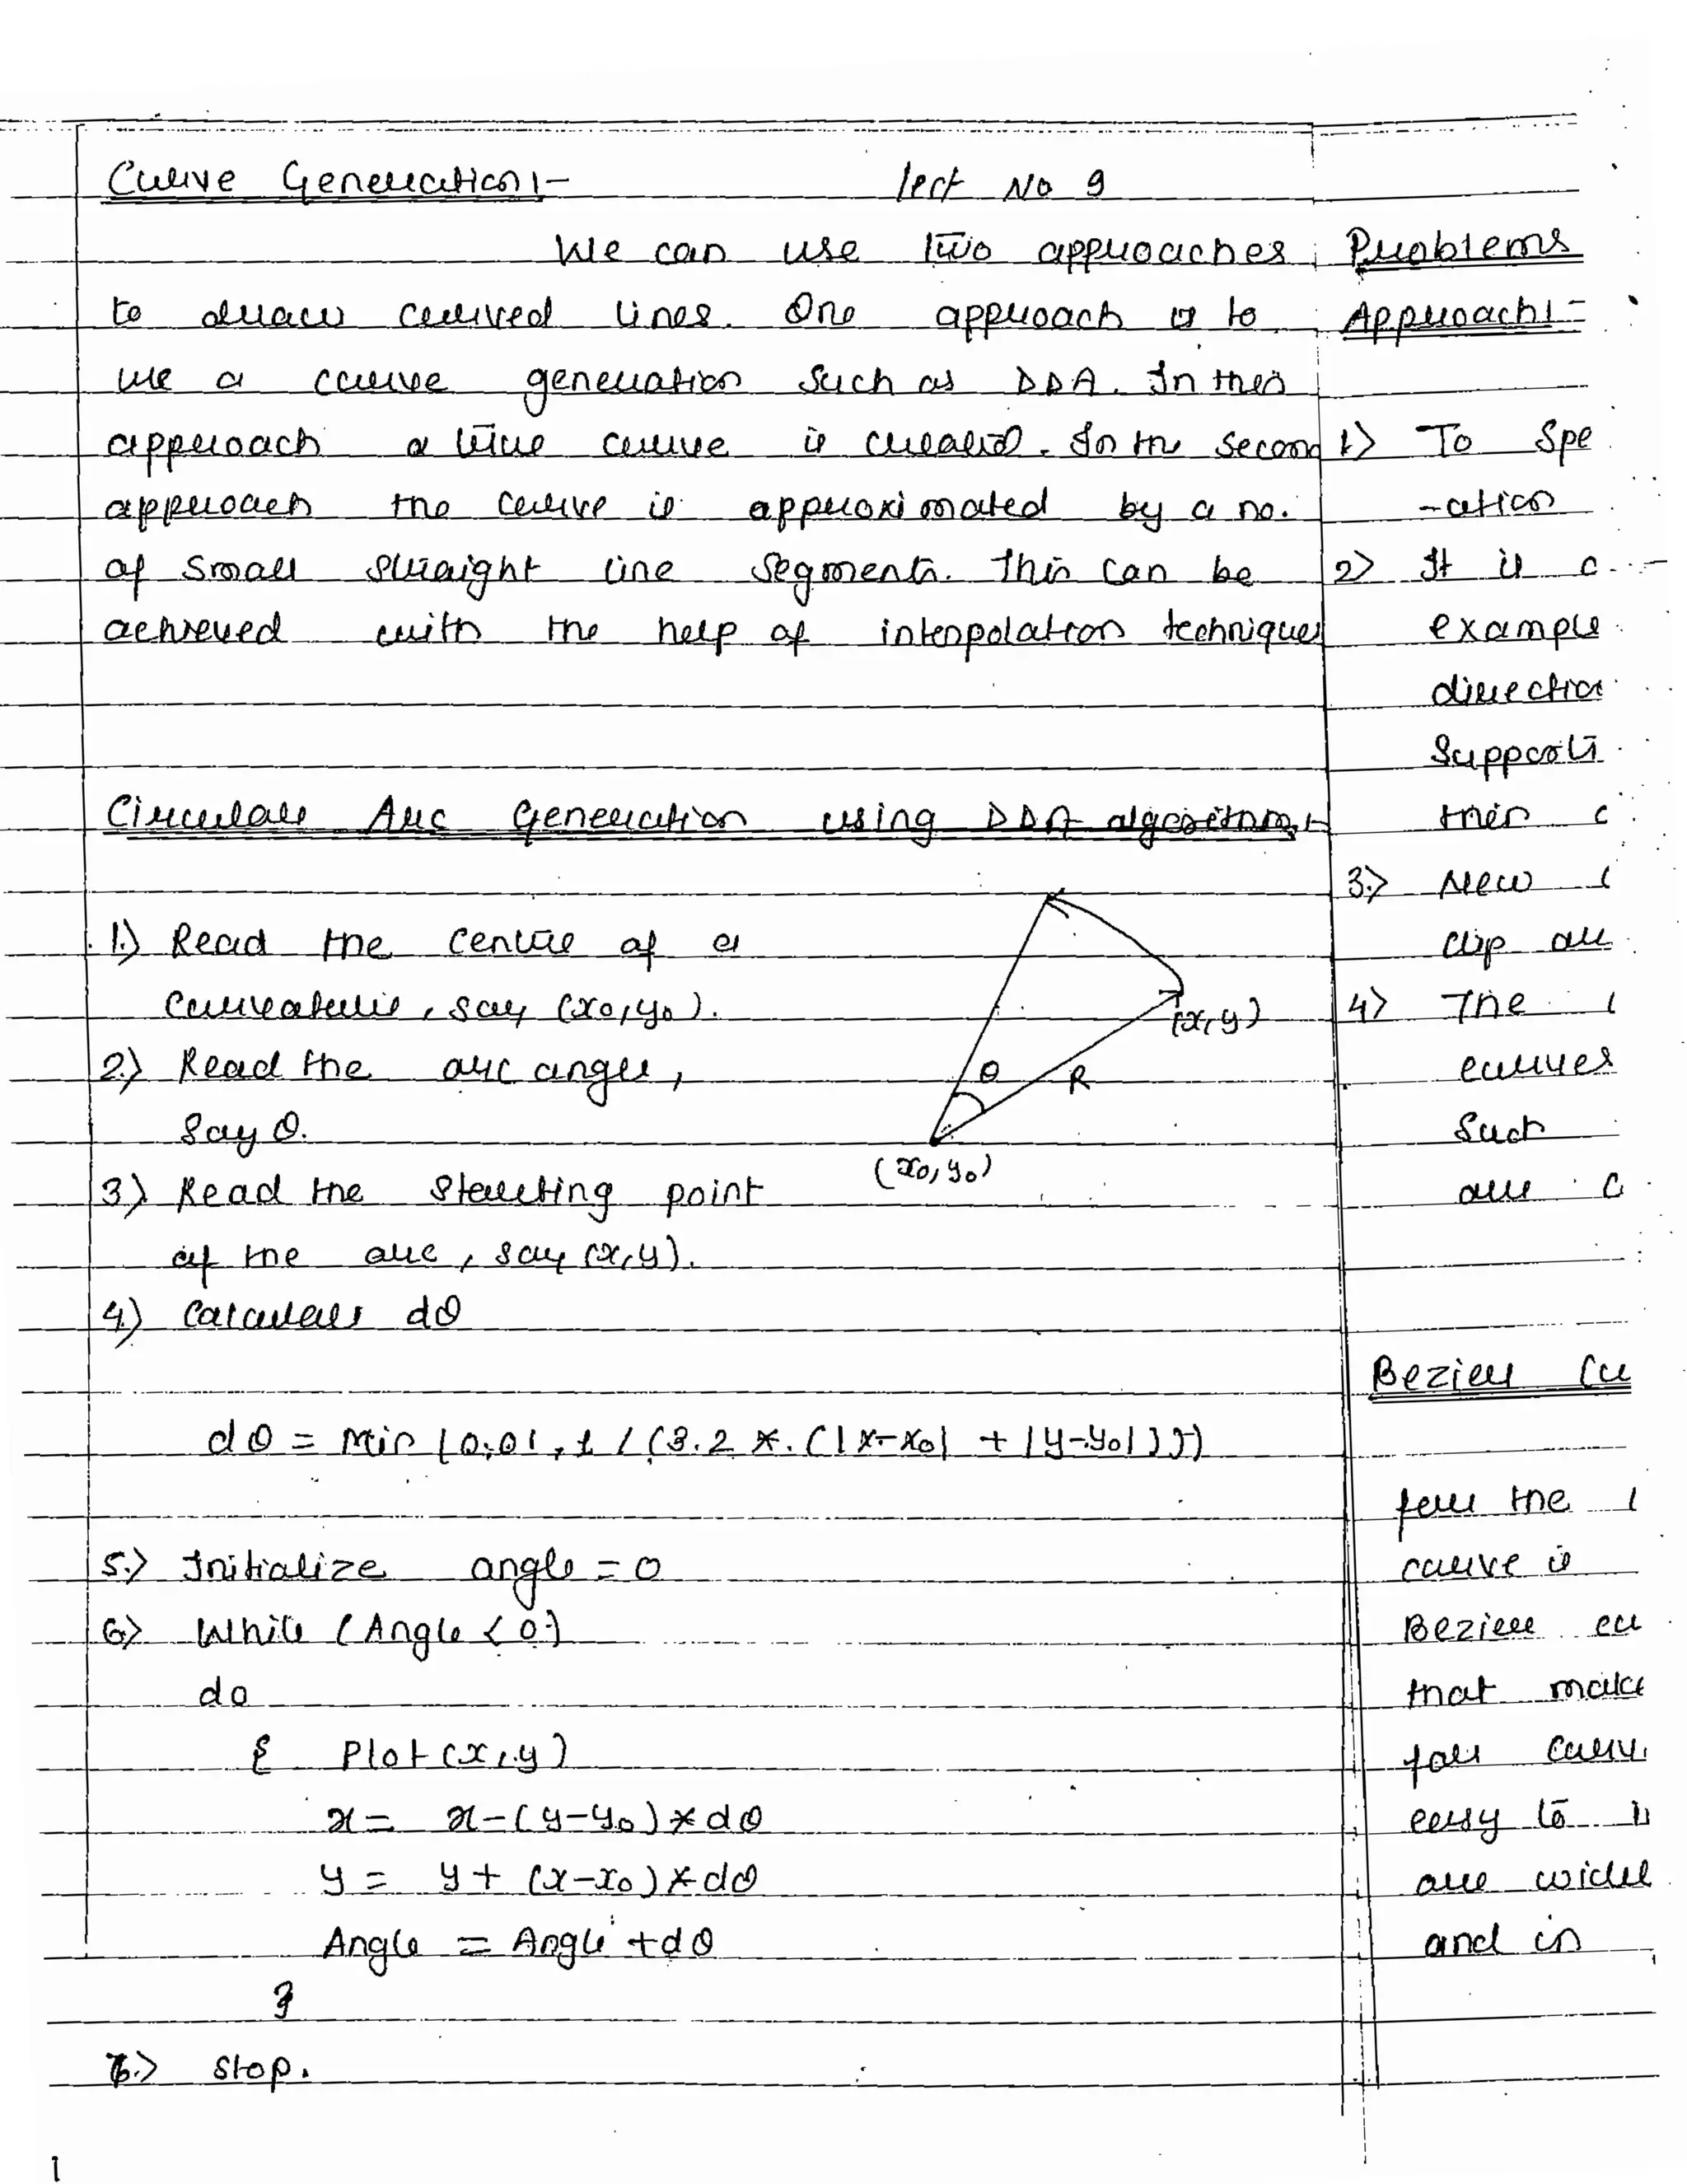 Curve Generation:-
Lect No 9
We can use two approaches
to draw curved lines. One approach is to
use a curve generation such as DDA. In this
approach a true curve is created. In the second
approach the curve is approximated by a no.
of small straight line segments. This can be
achieved with the help of interpolation techniques
Circular Arc Generation using DDA algorithm:-
1.) Read the centre of a
curvature, say (x0, y0).
2.) Read the arc angle,
say θ.
3.) Read the starting point
of the arc, say (x, y).
4.) Calculate dθ
dθ = Min (0.01, 1 / (3.2 * (|x-x0| + |y-y0|)))
5.) Initialize angle = 0
6.) While (Angle < θ)
do
{ Plot (x, y)
x = x - (y-y0) * dθ
y = y + (x-x0) * dθ
Angle = Angle + dθ
}
7.) Stop.
(x, y)
θ
R
(x0, y0)
1
Problems
Approach:-
1.) To Spe
-ation
2) It is
example
directio
Supporti
this
3.) New
clip all
4) The
curves
Such
are
Bezier Cu
for the
curve is
Bezier cu
that make
for curv
easy to
are widel
and in